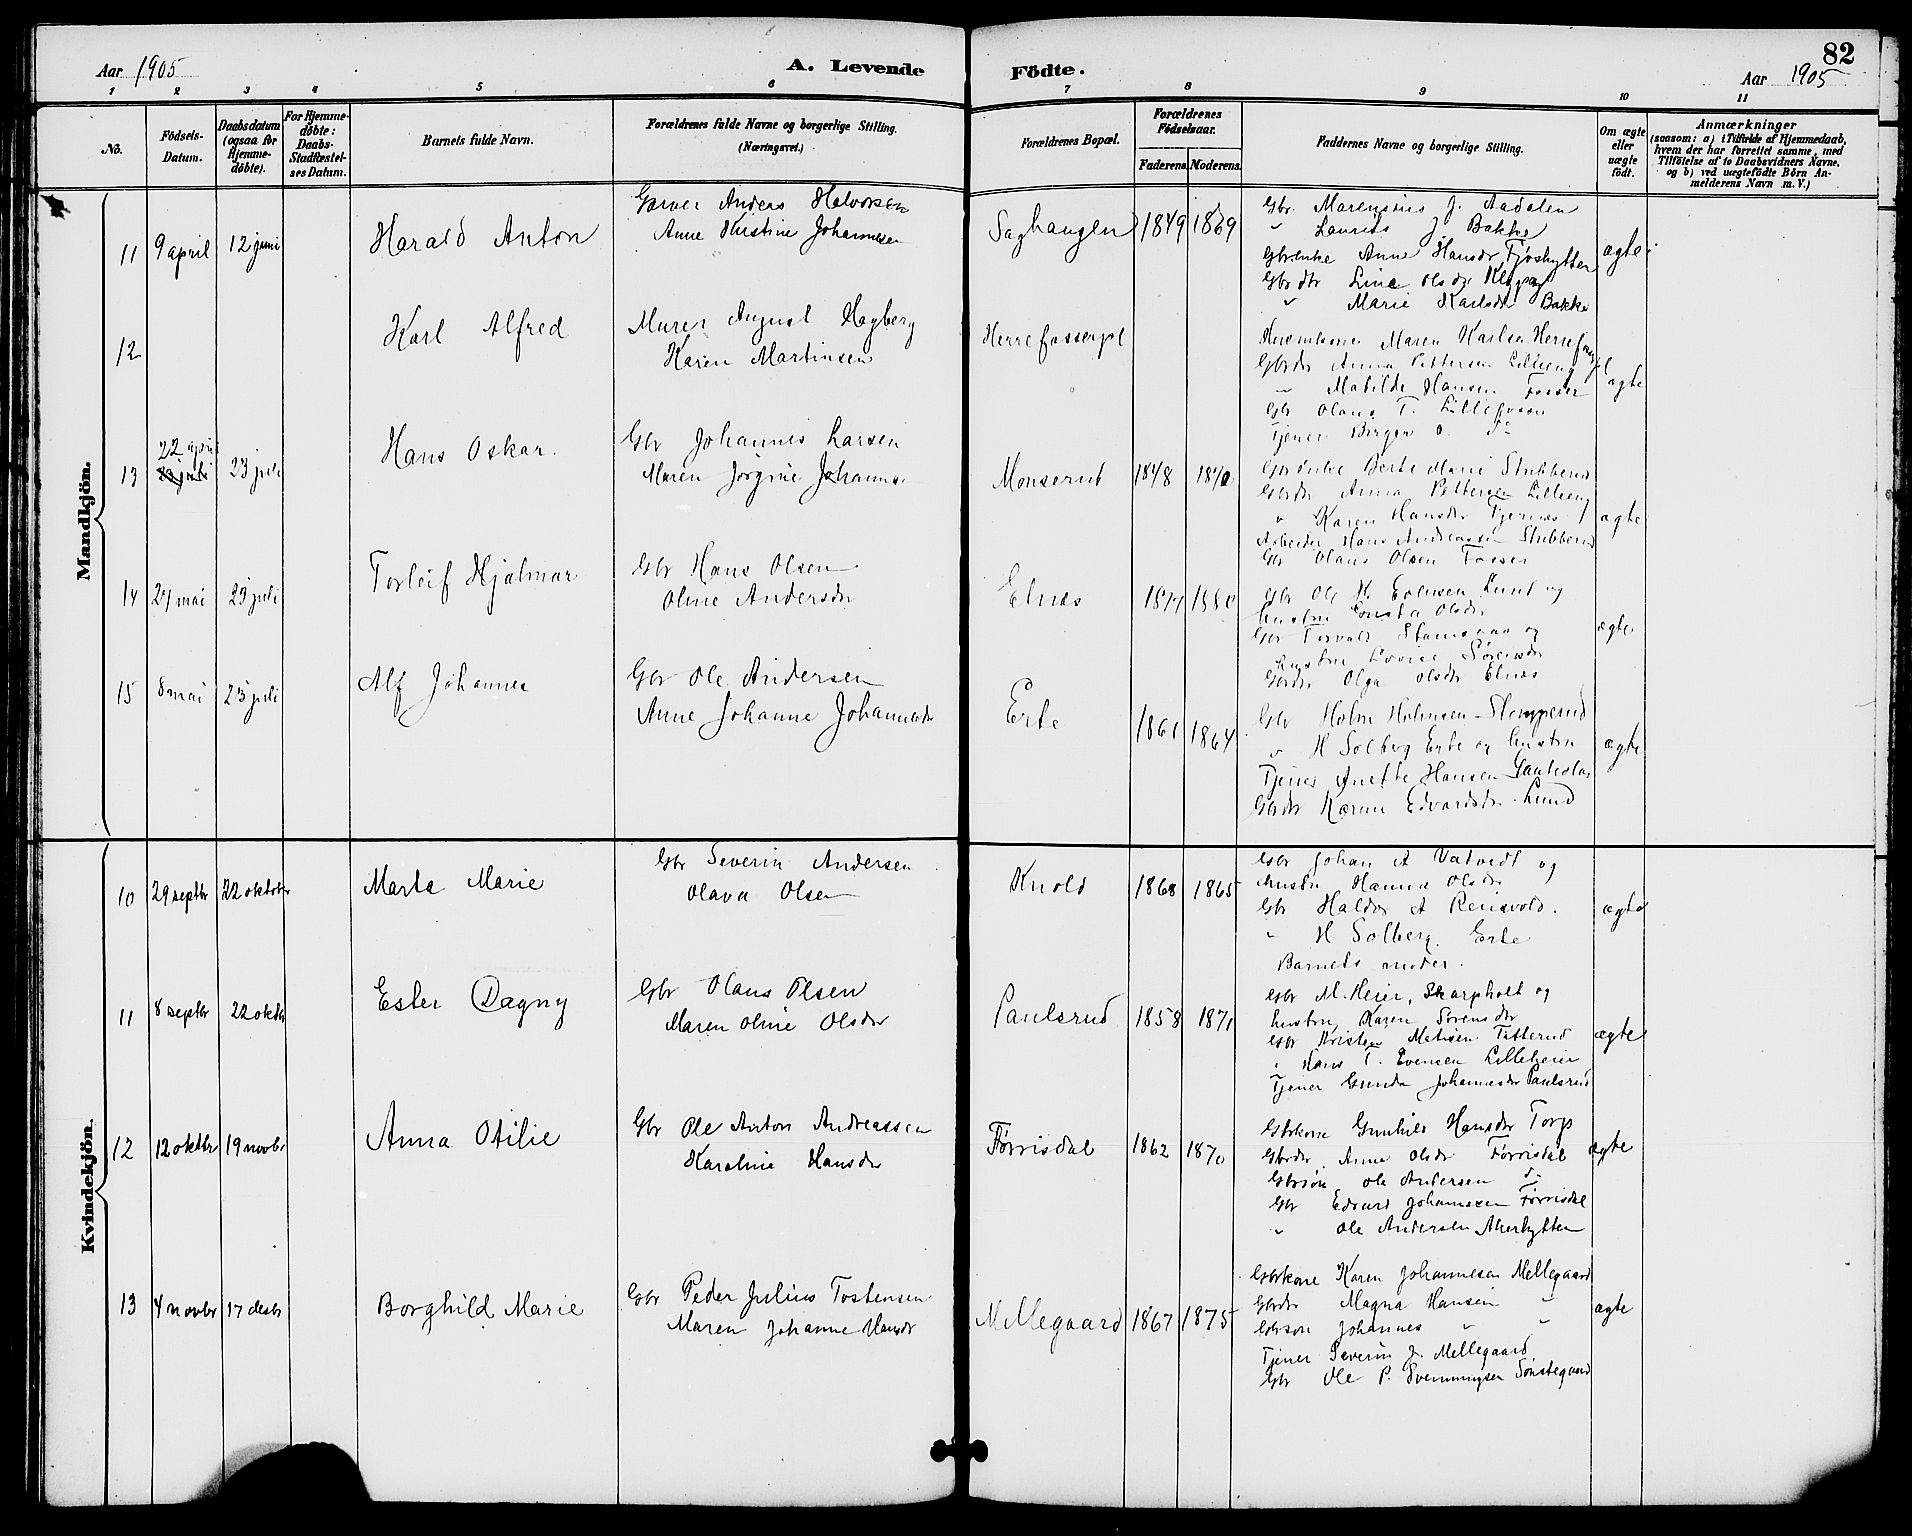 Aar 1905
A. Levende
Födte.
82
Aar 1905
1 2 3 4 5 6 7 8 9 10 11
No.
Födsels-Datum.
Daabsdatum (ogsaa for Hjemme-döbte).
For Hjemme-döbte: Daabs-Stadfæstel-ses Datum.
Barnets fulde Navn.
Forældrenes fulde Navne og borgerlige Stilling.
(Næringsvei.)
Forældrenes Bopæl.
Forældrenes Födselsaar.
Faderens.
Moderens.
Faddernes Navne og borgerlige Stilling.
Om ægte eller uægte födt.
Anmærkninger
(saasom: a) i Tilfælde af Hjemmedaab,
hvem der har forrettet samme, med
Tilföielse af to Daabsvidners Navne,
og b) ved uægtefödte Börn An-
melderens Navn m. V.)
Mandkjön.
11 9 april 12 juni Harald Anton
Garver Anders Halvorsen
Anne Kristine Johannesen
Saghaugen 1849 1869
Gbr. Marensius J. Aadalen
" Laurits J Bakke
Gbrenke Anne Hansdr Fjøshytten
Gbrdtr Line Olsdr
" Marie Karlsdr Bakke
ægte
12 Karl Alfred
Murer August Høgberg
Karen Martinsen
Herrefosserpl
Maren Karlsen
Gbrdr Anna Pettersen Lilleeng
" Matilde Hansen Fosser
Gbr Olaus T.
Tjener Birger O. do
ægte
13 22 april 23 juli Hans Oskar.
Gbr Johannes Larsen
Maren Jørgine Johanns
Monserud 1848
Gbrenke Berte Marie Stubberud
Gbrdr Anna Pettersen Lilleeng
" Karen Hansdr Tjernes
Arbeider Hans Andreassen Stubberud
Gbr Olaus Olsen Fosser
ægte
14 27 mai 23 juli Torleif Hjalmar
Gbr Hans Olsen
Oline Andersdr
Elnes 1877 1880
Gbr Ole H. Evensen Lund og
hustru Gusta Olsdr
Gbr Torvald og
hustru Lovise Sørensdr
Gbrdr Olga Olsdr Elnes
ægte
15 8 mai 23 juli Alf Johannes
Gbr Ole Andersen
Anne Johanne Johannesdr
Erte 1861 1864
Gbr Holm Holmsen Slorperud
" H Solberg Erte og hustru
Tjener Anette Hansen
Gbrdr Karen Edvardsdr Lund
ægte
Kvindekjön.
10 29 septbr 22 oktober Marta Marie
Gbr Severin Andersen
Olava Olsen
Knold 1868 1865
Gbr Johan A Vatvedt og
hustru Hanna Olsdr
Gbr Haldor A Rensvold.
" H Solberg. Erte
Barnets moder.
ægte
11 8 septbr 22 oktbr Ester Dagny
Gbr Olaus Olsen
Maren Oline Olsdr
Paulsrud 1858 1871
Gbr M. Heier, Skarpholt og
hustru Karen Sørensdr
Gbr Kristian Matisen Titterud
" Hans T. Evensen Lilleheier
Tjener Gunda Johannesdr Paulsrud
ægte
12 12 oktbr 19 novbr Anna Otilie
Gbr Ole Anton Andreassen
Karoline Hansdr
Førrisdal 1862 1870
Gbrkone Gunhild Hansdr Torp
Gbrdr. Anne Olsdr Førrisdal
Gbrsøn Ole Andersen do
Gbr Edvard Johannesen Førrisdal
" Ole Andersen Akerhytten
ægte
13 4 novbr 17 desbr Borghild Marie
Gbr Peder Julius Tostensen
Maren Johanne Hansdr
Mellegaard 1867 1875
Gbrkone Karen Johannesen Mellegaard
Gbrdr Magna Hansen "
Gbrsøn Johannes " "
Tjener Severin J. Mellegaard
Gbr Ole P. Svenningsen Sønstegaard
ægte